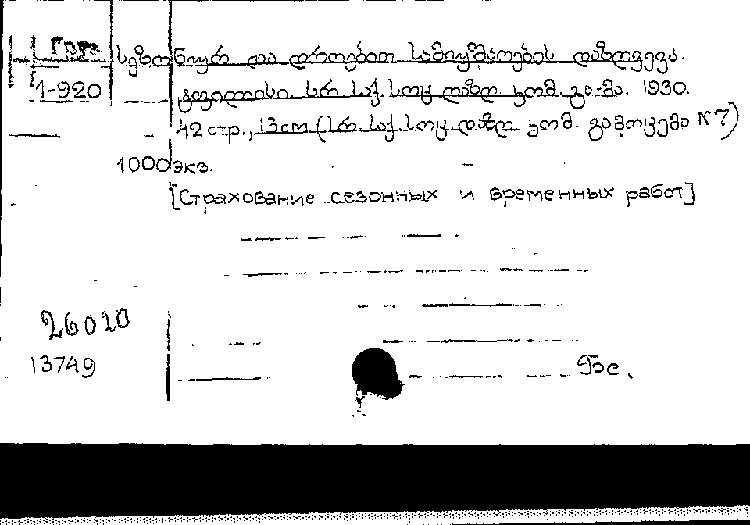 Груз
1-920
სეზონიურ და დროებით სამუშაოების დაზღვევა.
ტფილისი. სრ. საქ. სოც. დაზღ. კომ. გა-მა. 1930.
42 стр., 13 cm (სრ. საქ. სოც. დაზღ. კომ. გამოცემა N 7)
1000 экз.
[Страхование сезонных и временных работ]
26020
13749